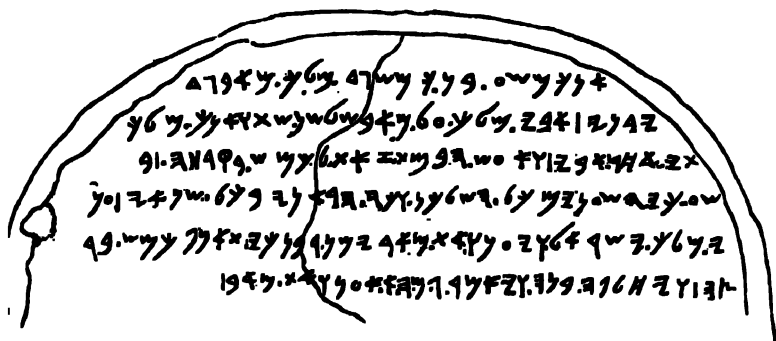 𐤀𐤍𐤊 𐤌𐤔𐤏.𐤁𐤍.𐤊𐤌𐤔 𐤌𐤋𐤊.𐤌𐤀𐤁.𐤄𐤃
𐤉𐤁𐤍𐤉|𐤀𐤁𐤉.𐤌𐤋𐤊.𐤏𐤋.𐤌𐤀𐤁.𐤔𐤋𐤔𐤍.𐤔𐤕.𐤅𐤀𐤍𐤊.𐤌𐤋𐤊
𐤕𐤉.𐤀𐤇𐤓.𐤀𐤁𐤉|𐤅𐤀𐤏𐤔.𐤄𐤁𐤌𐤕.𐤆𐤀𐤕.𐤋𐤊𐤌𐤔.𐤁𐤒𐤓𐤇𐤄|𐤁
𐤔𐤏.𐤊𐤉.𐤄𐤔𐤏𐤍𐤉.𐤌𐤊𐤋.𐤄𐤌𐤋𐤊𐤍.𐤅𐤊𐤉.𐤄𐤓𐤀𐤍𐤉.𐤁𐤊𐤋.𐤔𐤍𐤀𐤉|𐤏𐤌𐤓
𐤉.𐤌𐤋𐤊.𐤉𐤔𐤓𐤀𐤋.𐤅𐤉𐤏𐤍𐤅.𐤀𐤕.𐤌𐤀𐤁.𐤉𐤌𐤍.𐤓𐤁𐤍.𐤊𐤉.𐤕𐤀𐤍𐤐.𐤊𐤌𐤔.𐤁𐤀𐤓
𐤑𐤄|𐤅𐤉𐤇𐤋𐤐𐤄.𐤁𐤍𐤄.𐤅𐤉𐤀𐤌𐤓.𐤂𐤌.𐤄𐤀.𐤀𐤏𐤍𐤅.𐤀𐤕.𐤌𐤀𐤁|